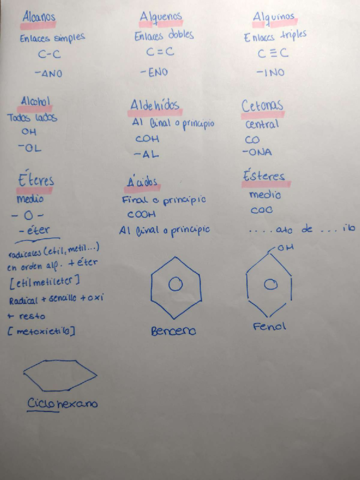 Alcanos
Enlaces simples
C-C
-ANO
Alquenos
Enlaces dobles
C=C
-ENO
Alquinos
Enlaces triples
C≡C
-INO
Alcohol
Todos lados
OH
-OL
Aldehídos
Al final o principio
COH
-AL
Cetonas
central
CO
-ONA
Éteres
medio
-O-
-éter
radicales (etil, metil...)
en orden alf. + éter
[etilmetileter]
Radical + sencillo + oxi
+ resto
[metoxietilo]
Ácidos
Final o principio
COOH
Al final o principio
Ésteres
medio
COO
....ato de ...ilo
Benceno
OH
Fenol
Ciclohexano